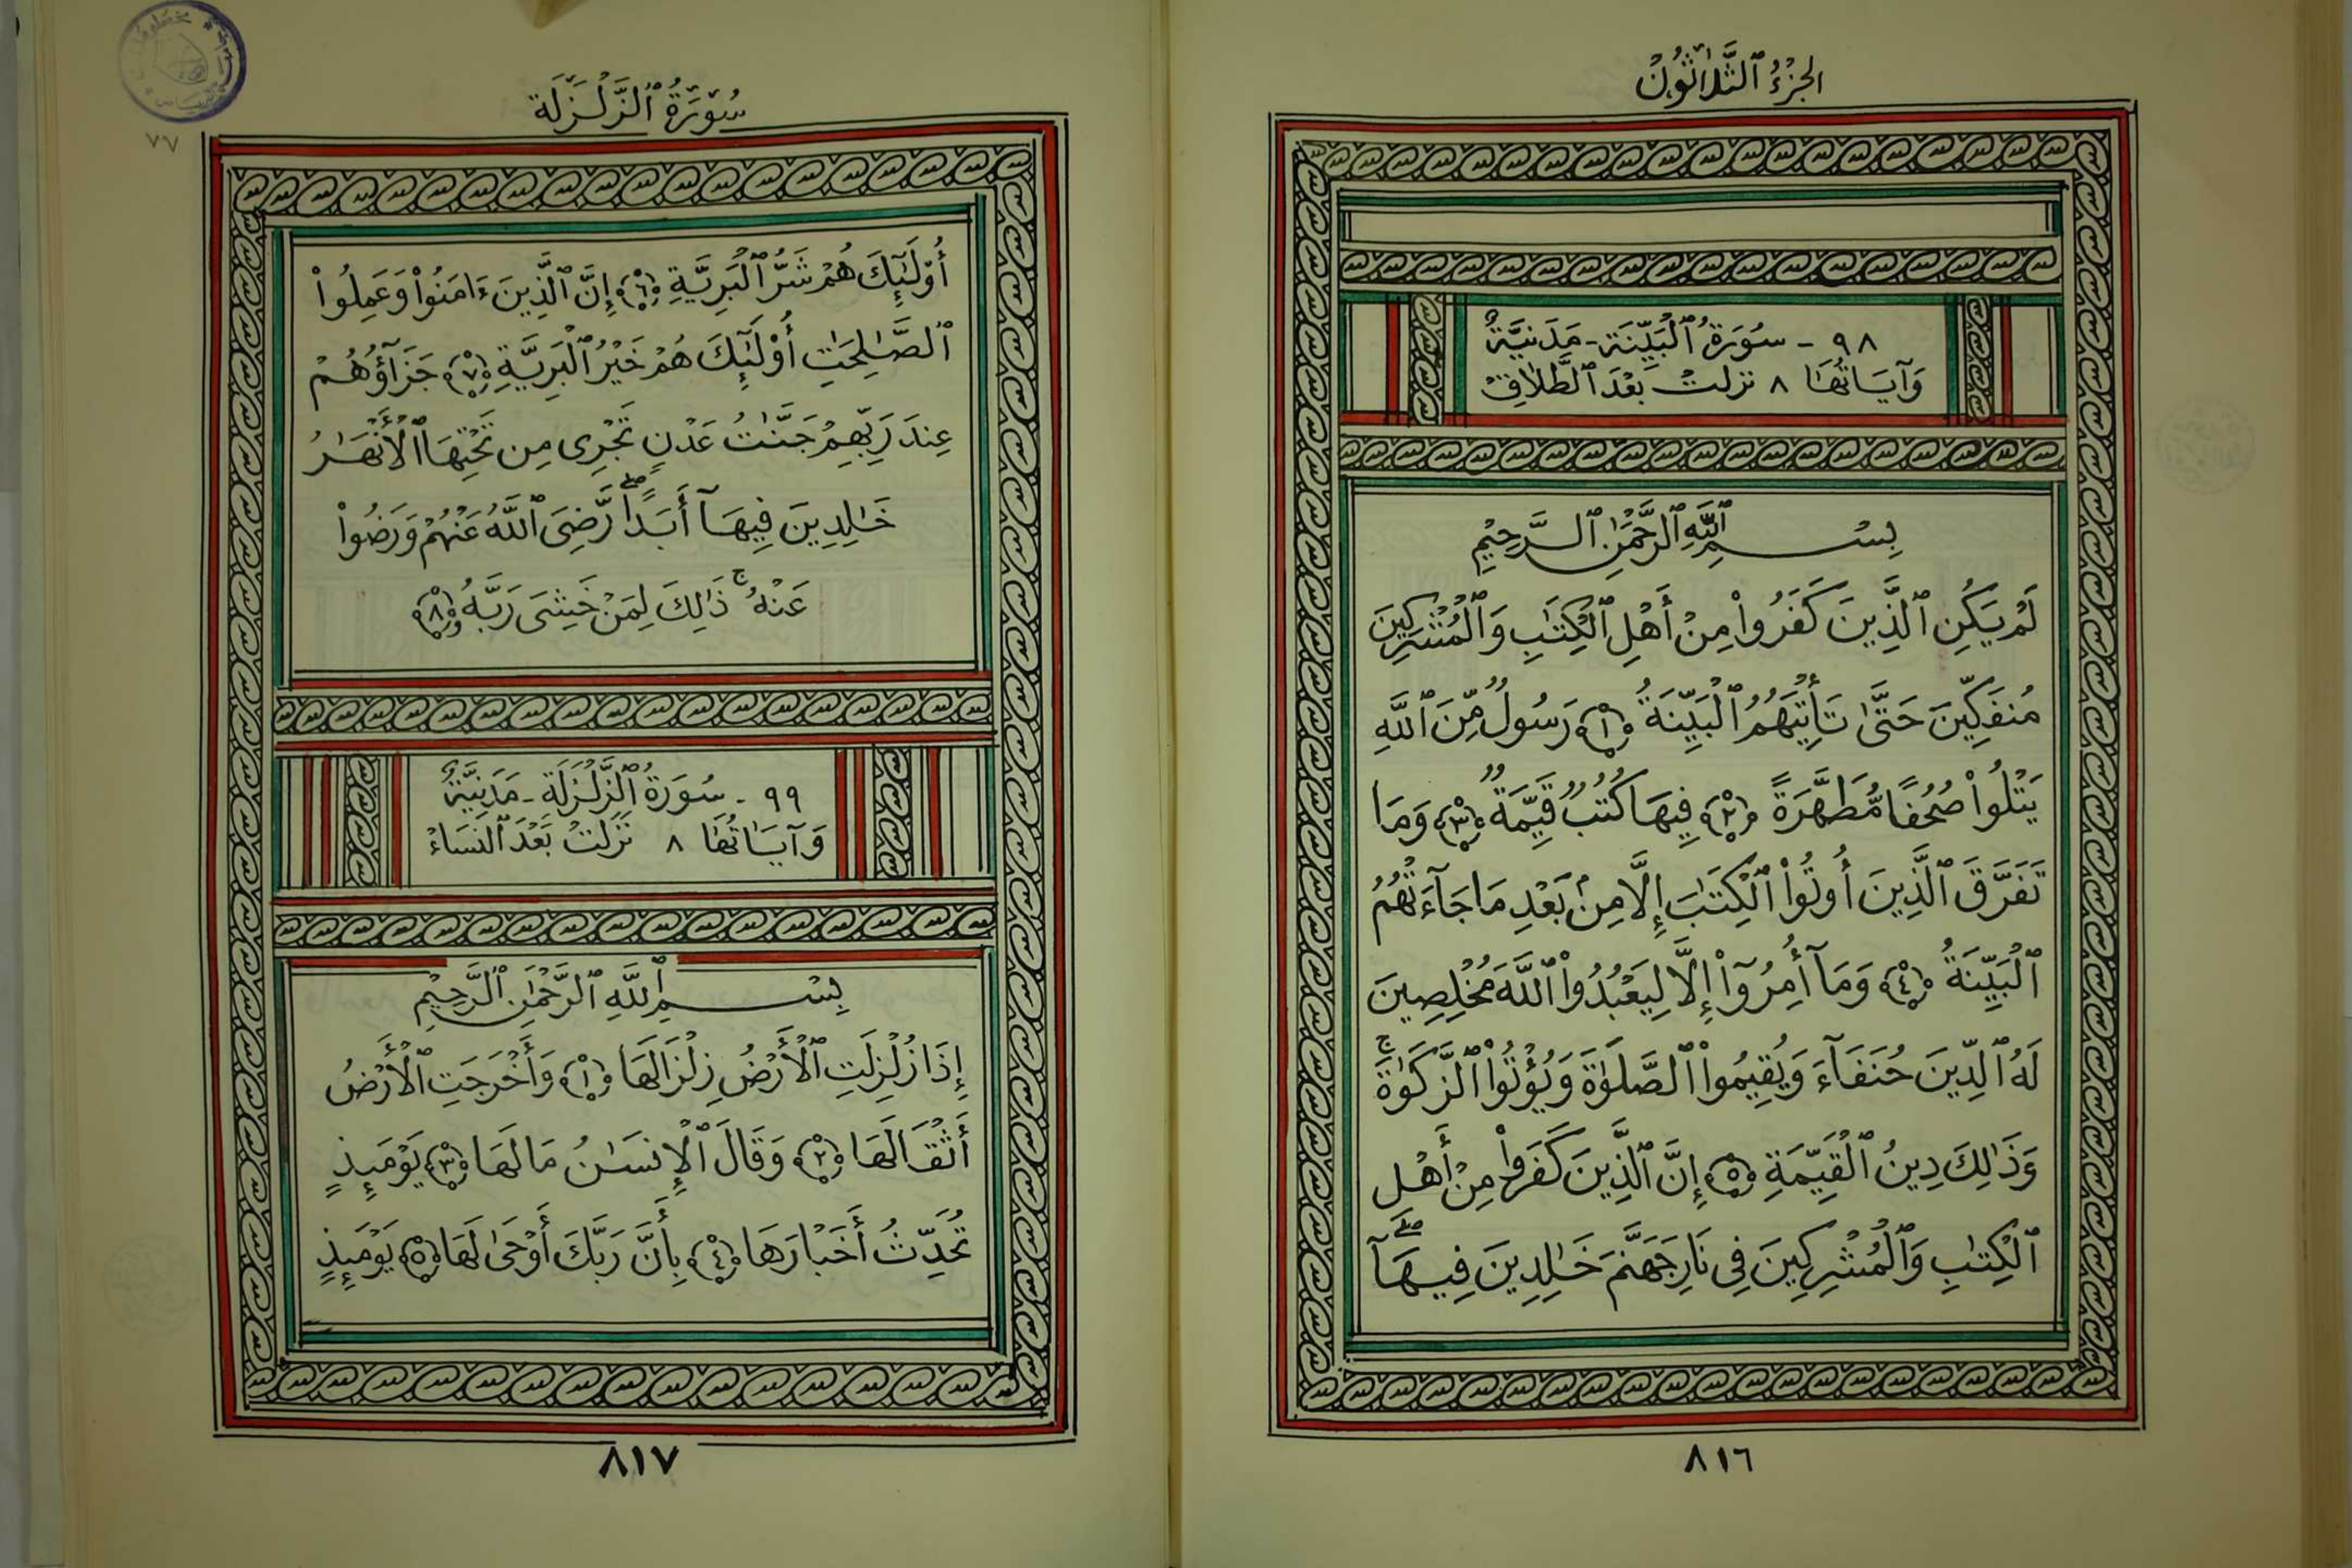 الجزءُ ٱلثَّلاثُونْ
٩٨ - سُورَةُ ٱلْبَيِّنَة - مَدَنِيَّةٌ
وَآيَاتُهَا ٨ نزلتْ بَعْدَ ٱلطَّلَاقِ
بِسْمِ ٱللَّهِ ٱلرَّحْمَٰنِ ٱلرَّحِيْمِ
لَمْ يَكُنِ ٱلَّذِينَ كَفَرُوا۟ مِنْ أَهْلِ ٱلْكِتَٰبِ وَٱلْمُشْرِكِينَ
مُنفَكِّينَ حَتَّىٰ تَأْتِيَهُمُ ٱلْبَيِّنَةُ ﴿١﴾ رَسُولٌ مِّنَ ٱللَّهِ
يَتْلُوا۟ صُحُفًا مُّطَهَّرَةً ﴿٢﴾ فِيهَا كُتُبٌ قَيِّمَةٌ ﴿٣﴾ وَمَا
تَفَرَّقَ ٱلَّذِينَ أُوتُوا۟ ٱلْكِتَٰبَ إِلَّا مِنۢ بَعْدِ مَا جَآءَتْهُمُ
ٱلْبَيِّنَةُ ﴿٤﴾ وَمَآ أُمِرُوٓا۟ إِلَّا لِيَعْبُدُوا۟ ٱللَّهَ مُخْلِصِينَ
لَهُ ٱلدِّينَ حُنَفَآءَ وَيُقِيمُوا۟ ٱلصَّلَوٰةَ وَيُؤْتُوا۟ ٱلزَّكَوٰةَ ۚ
وَذَٰلِكَ دِينُ ٱلْقَيِّمَةِ ﴿٥﴾ إِنَّ ٱلَّذِينَ كَفَرُوا۟ مِنْ أَهْلِ
ٱلْكِتَٰبِ وَٱلْمُشْرِكِينَ فِى نَارِ جَهَنَّمَ خَٰلِدِينَ فِيهَآ ۖ
٨١٦
سُوْرَةُ ٱلزَّلْزَلَة
٧٧
أُو۟لَٰٓئِكَ هُمْ شَرُّ ٱلْبَرِيَّةِ ﴿٦﴾ إِنَّ ٱلَّذِينَ ءَامَنُوا۟ وَعَمِلُوا۟
ٱلصَّٰلِحَٰتِ أُو۟لَٰٓئِكَ هُمْ خَيْرُ ٱلْبَرِيَّةِ ﴿٧﴾ جَزَآؤُهُمْ
عِندَ رَبِّهِمْ جَنَّٰتُ عَدْنٍ تَجْرِى مِن تَحْتِهَا ٱلْأَنْهَٰرُ
خَٰلِدِينَ فِيهَآ أَبَدًا ۖ رَّضِىَ ٱللَّهُ عَنْهُمْ وَرَضُوا۟
عَنْهُ ۚ ذَٰلِكَ لِمَنْ خَشِىَ رَبَّهُۥ ﴿٨﴾
٩٩ - سُورَةُ ٱلزَّلْزَلَة - مَدَنِيَّةٌ
وَآيَاتُهَا ٨ نَزَلَتْ بَعْدَ ٱلنسَاءْ
بِسْمِ ٱللَّهِ ٱلرَّحْمَٰنِ ٱلرَّحِيْمِ
إِذَا زُلْزِلَتِ ٱلْأَرْضُ زِلْزَالَهَا ﴿١﴾ وَأَخْرَجَتِ ٱلْأَرْضُ
أَثْقَالَهَا ﴿٢﴾ وَقَالَ ٱلْإِنسَٰنُ مَا لَهَا ﴿٣﴾ يَوْمَئِذٍ
تُحَدِّثُ أَخْبَارَهَا ﴿٤﴾ بِأَنَّ رَبَّكَ أَوْحَىٰ لَهَا ﴿٥﴾ يَوْمَئِذٍ
٨١٧